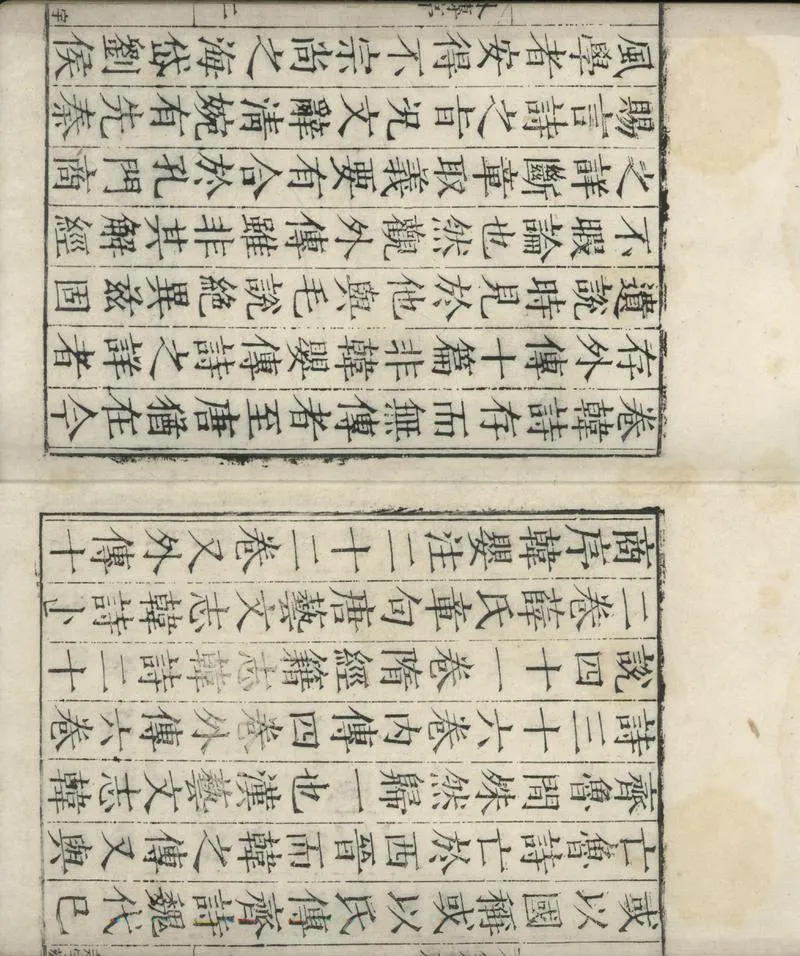 或以國稱或以氏傳齊詩魏代已
亡魯詩亡於西晉而韓之傳又與
齊魯間殊然歸一也漢藝文志韓
詩三十六卷內傳四卷外傳六卷
說四十一卷隋經籍志韓詩二十
二卷薛氏章句唐藝文志韓詩卜
商序韓嬰注二十二卷又外傳十
卷韓詩存而無傳者至唐猶在今
存外傳十篇非韓嬰傳詩之詳者
遺說時見於他與毛說絕異茲固
不暇論也然觀外傳雖非其解經
之詳斷章取義要有合於孔門商
賜言詩之旨況文辭清婉有先秦
風學者安得不宗尚之海岱劉侯